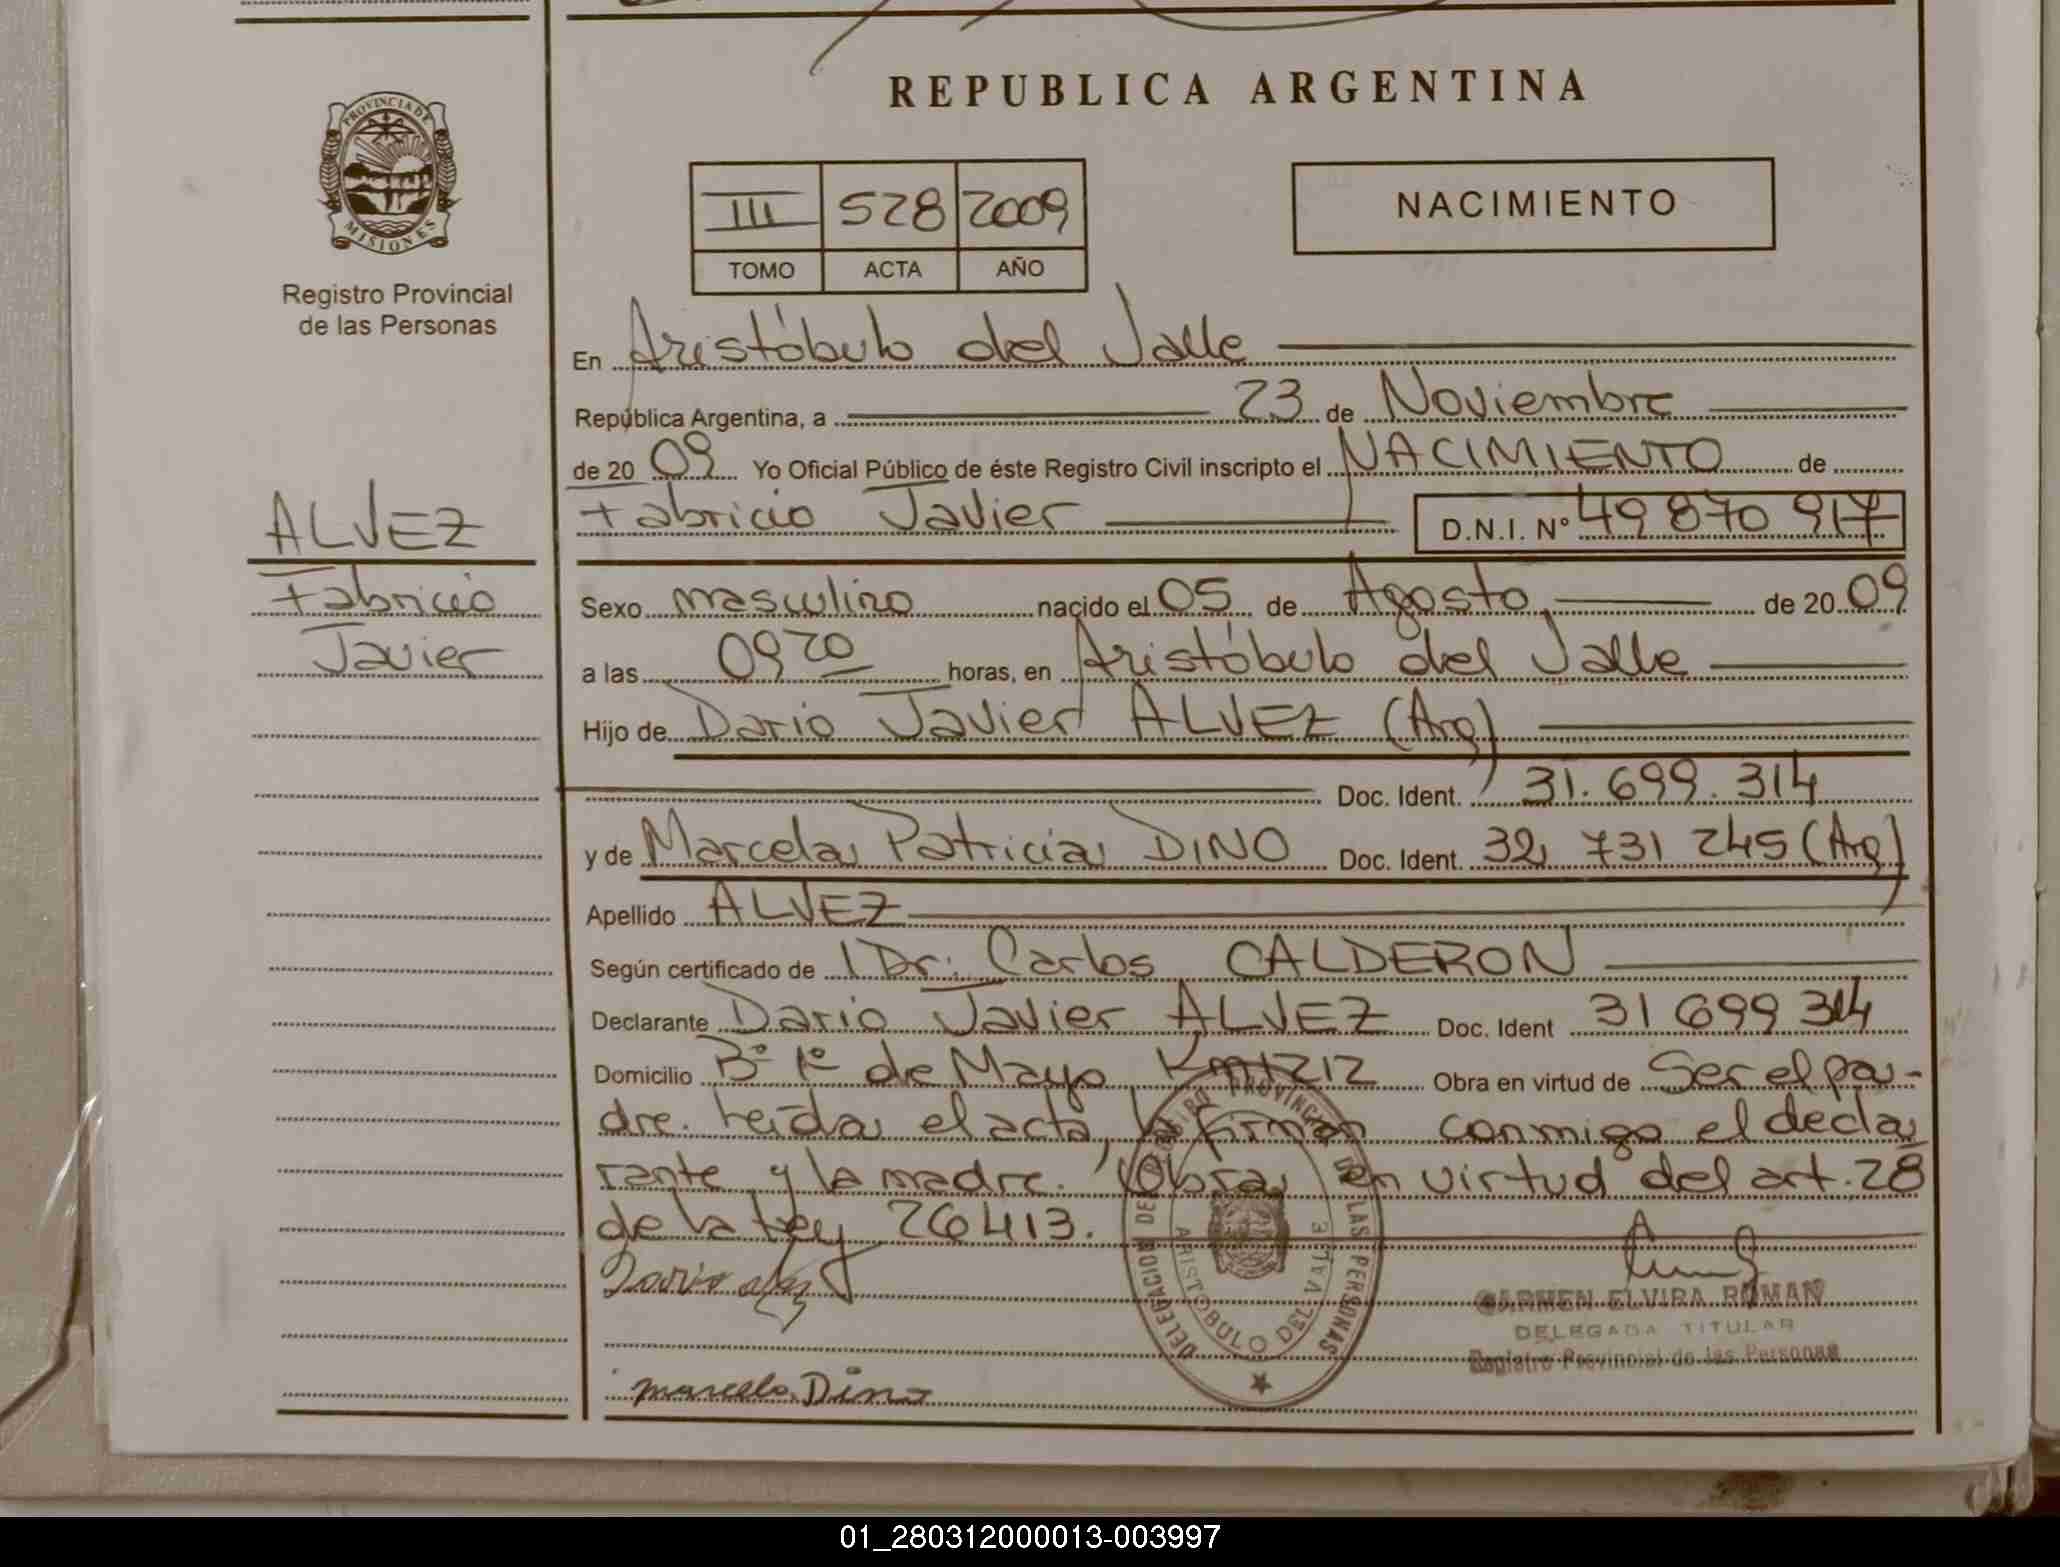 REPUBLICA ARGENTINA
PROVINCIA DE
MISIONES
Registro Provincial
de las Personas
III 528 2009
TOMO ACTA AÑO
NACIMIENTO
En Aristóbulo del Valle
República Argentina, a 23 de Noviembre
de 20 09 Yo Oficial Público de éste Registro Civil inscripto el NACIMIENTO de
Fabricio Javier D.N.I. Nº 49 870 917
ALVEZ
Fabricio
Javier
Sexo masculino nacido el 05 de Agosto de 20 09
a las 09 20 horas, en Aristóbulo del Valle
Hijo de Dario Javier ALVEZ (Arg)
Doc. Ident. 31.699.314
y de Marcela Patricia DINO Doc. Ident. 32 731 245 (Arg)
Apellido ALVEZ
Según certificado de Dr. Carlos CALDERON
Declarante Dario Javier ALVEZ Doc. Ident 31 699 314
Domicilio Bº 1º de Mayo Km 1212 Obra en virtud de Ser el pa-
dre. Leída el acta, la firman conmigo el decla
rante y la madre. Obra en virtud del art. 28
de la Ley 26413.
Dario
CARMEN ELVIRA ROMAN
DELEGADA TITULAR
Registro Provincial de las Personas
marcela Dino
DELEGACION DEL REGISTRO PROVINCIAL DE LAS PERSONAS
ARISTOBULO DEL VALLE
01_280312000013-003997